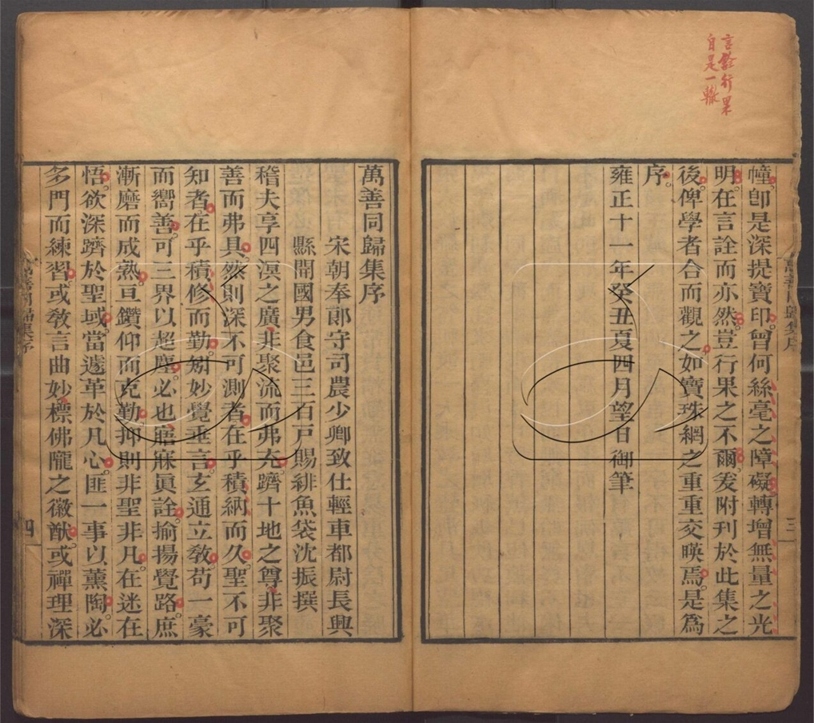 言詮行果
自是一轍
幢卽是深提寶印曾何絲毫之障礙轉增無量之光
明在言詮而亦然豈行果之不爾爰附刊於此集之
後俾學者合而觀之如寶珠網之重重交暎焉是爲
序
雍正十一年癸丑夏四月望日御筆
萬善同歸集序
三
萬善同歸集序
宋朝奉郎守司農少卿致仕輕車都尉長興
縣開國男食邑三百戸賜緋魚袋沈振撰
稽夫享四溟之廣非聚流而弗充躋十地之尊非聚
善而弗具然則深不可測者在乎積納而久聖不可
知者在乎積修而勤矧妙覺垂言玄通立敎苟一豪
而嚮善可三界以超塵必也寤寐眞詮揄揚覺路庶
漸磨而成熟亘鑽仰而克勤抑則非聖非凡在迷在
悟欲深躋於聖域當遽革於凡心匪一事以薰陶必
多門而練習或敎言曲妙標佛隴之徽猷或禪理深
萬善同歸集序
四